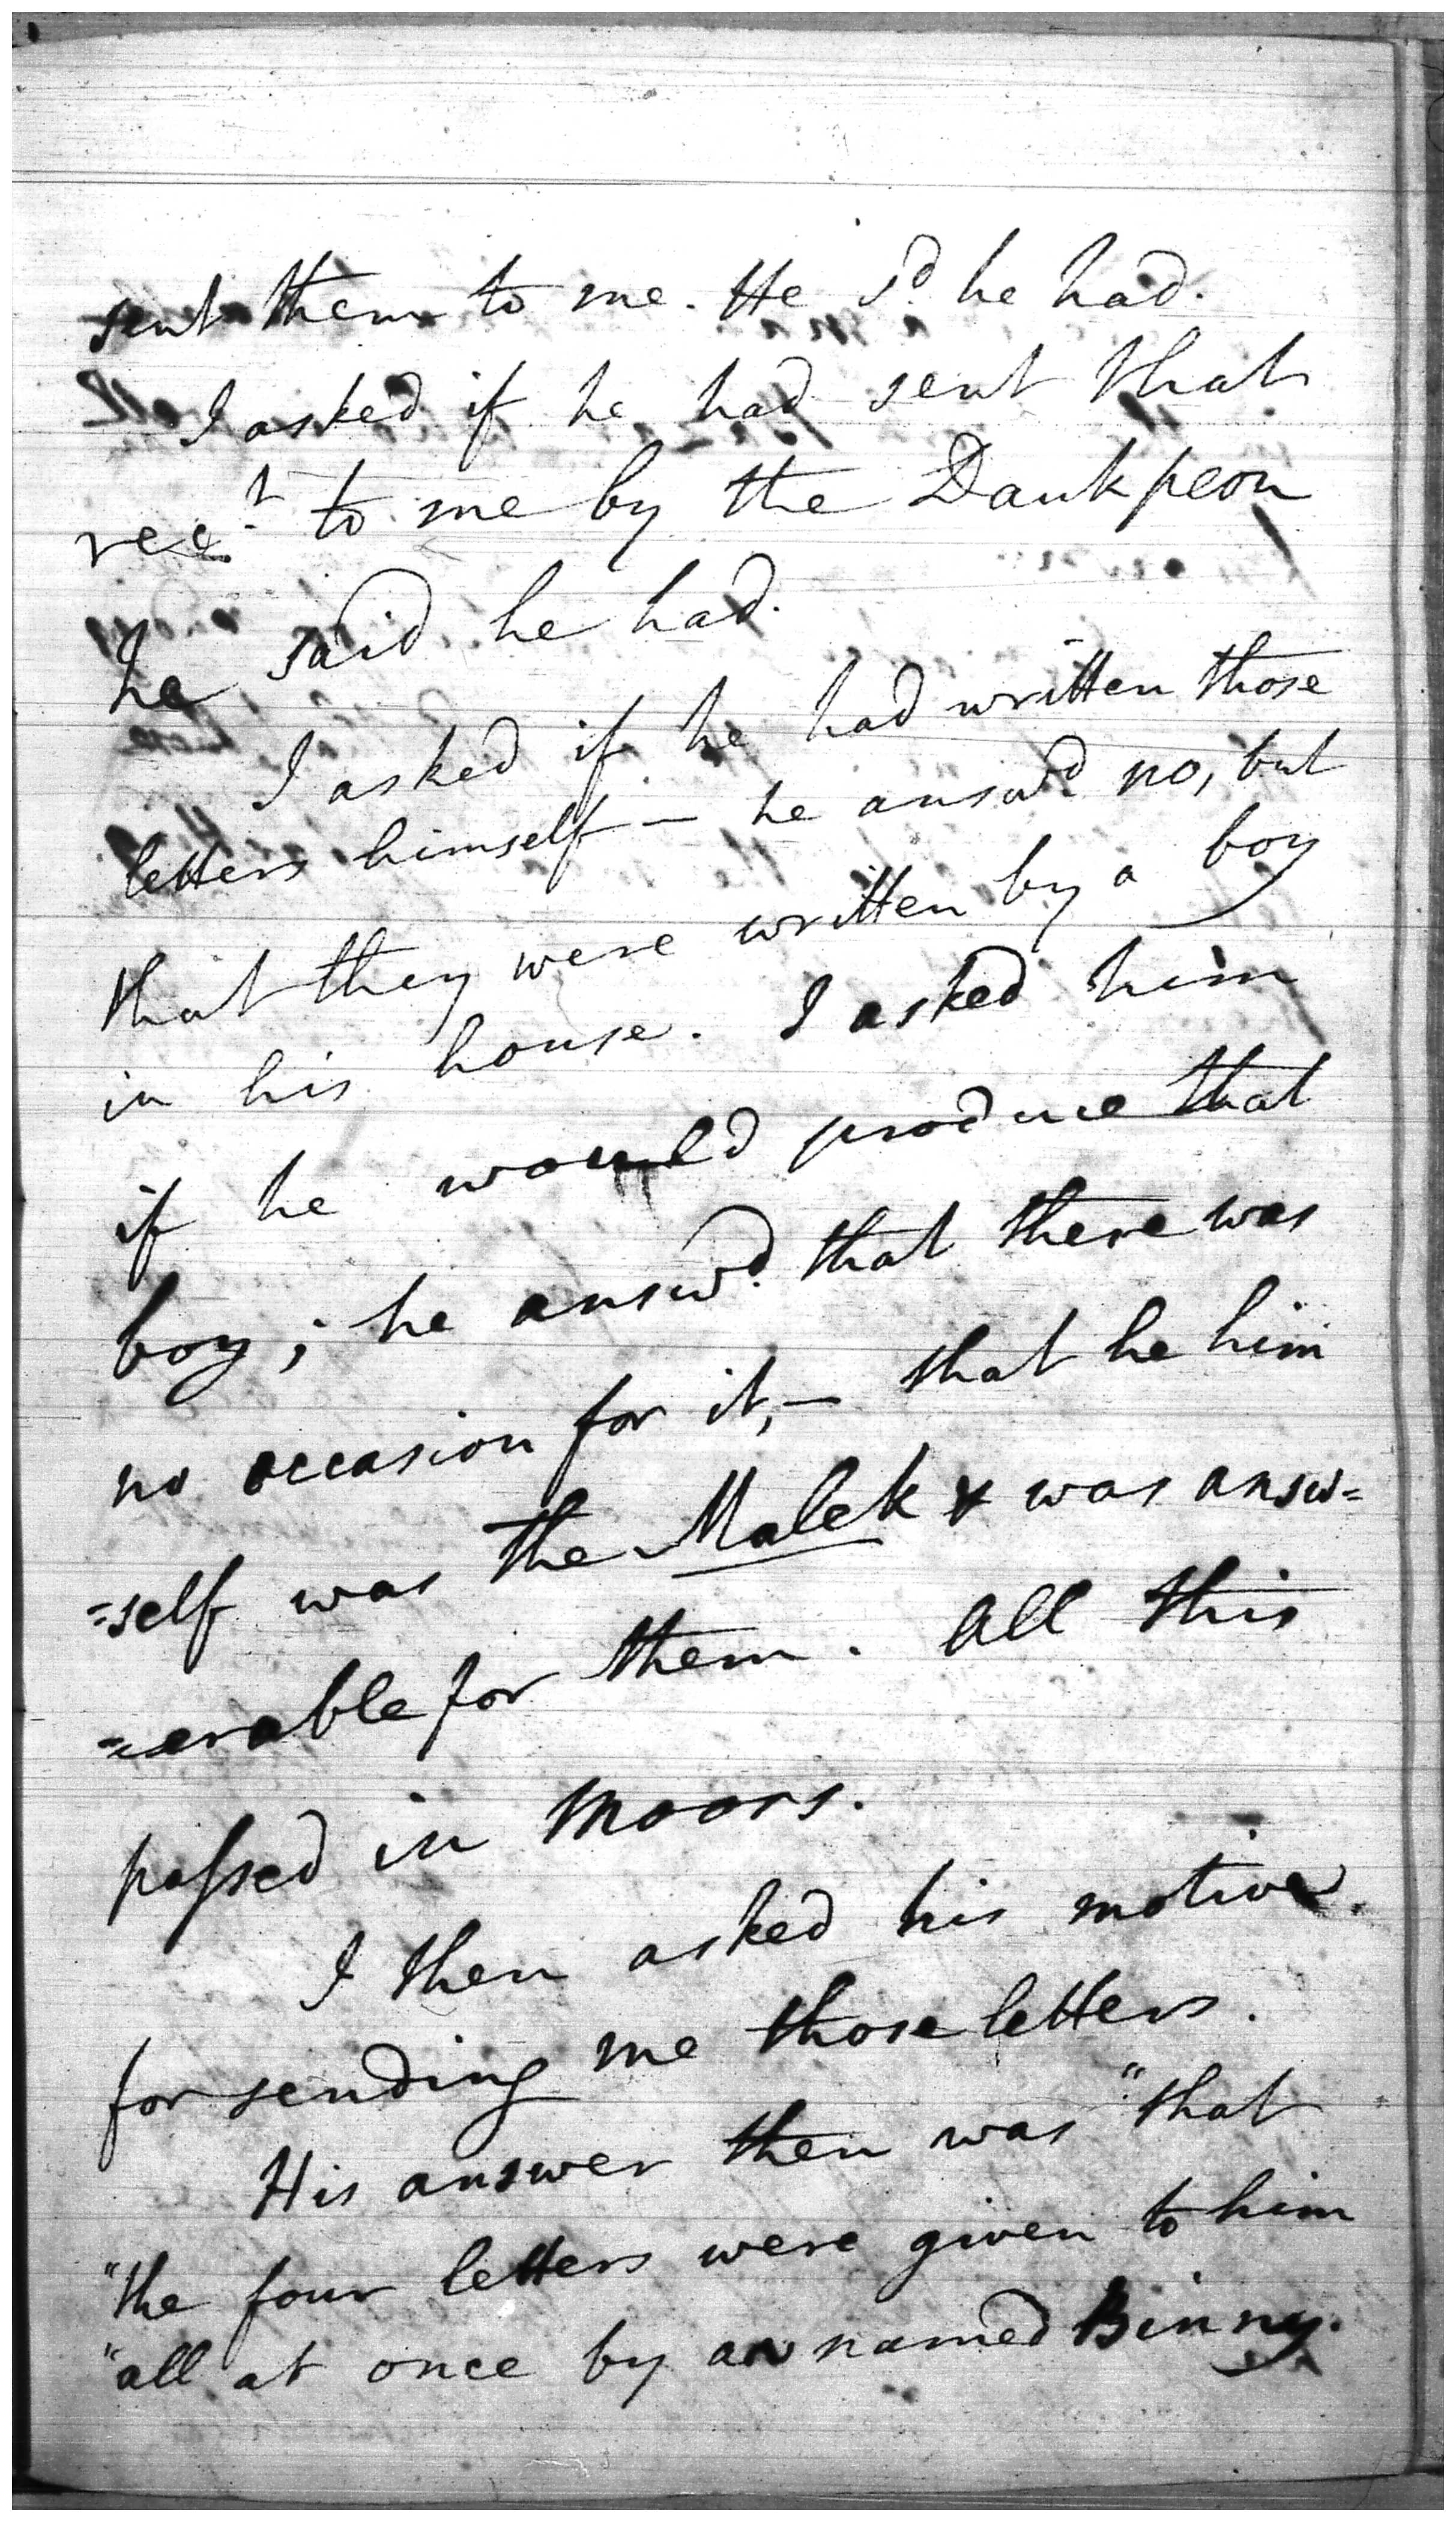 sent them to me. He sd. he had.
I asked if he had sent that
rect. to me by the Daukpeon
he said he had.
I asked if he had written those
letters himself – he answd. no, but
that they were written by a boy
in his house. I asked him
if he would produce that
boy; he answd. that there was
no occasion for it, – that he him
=self was the Malek & was answ=
=erable for them. All this
passed in Moors.
I then asked his motive.
for sending me those letters.
His answer then was "that
"the four letters were given to him
"all at once by a named Binny.